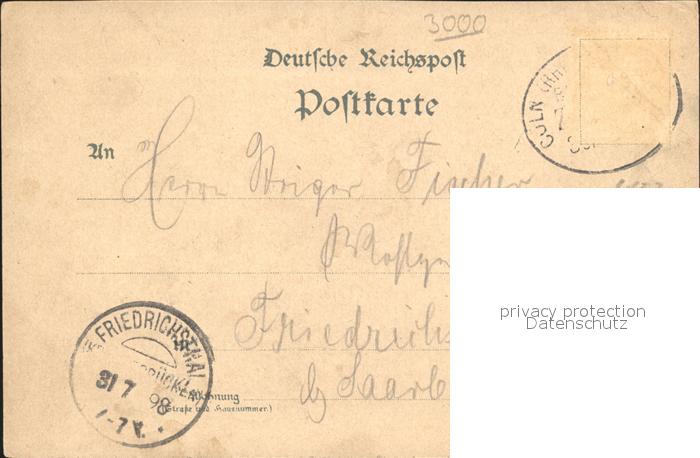 3000
Deutsche Reichspost
Postkarte
CÖLN (Rh
An
Herrn Fischer
privacy protection
Datenschutz
Friedrichs
FRIEDRICHSTHAL
BRÜCKEN
31 7
98
b/ Saarb
Wohnung
(Straße und Hausnummer.)